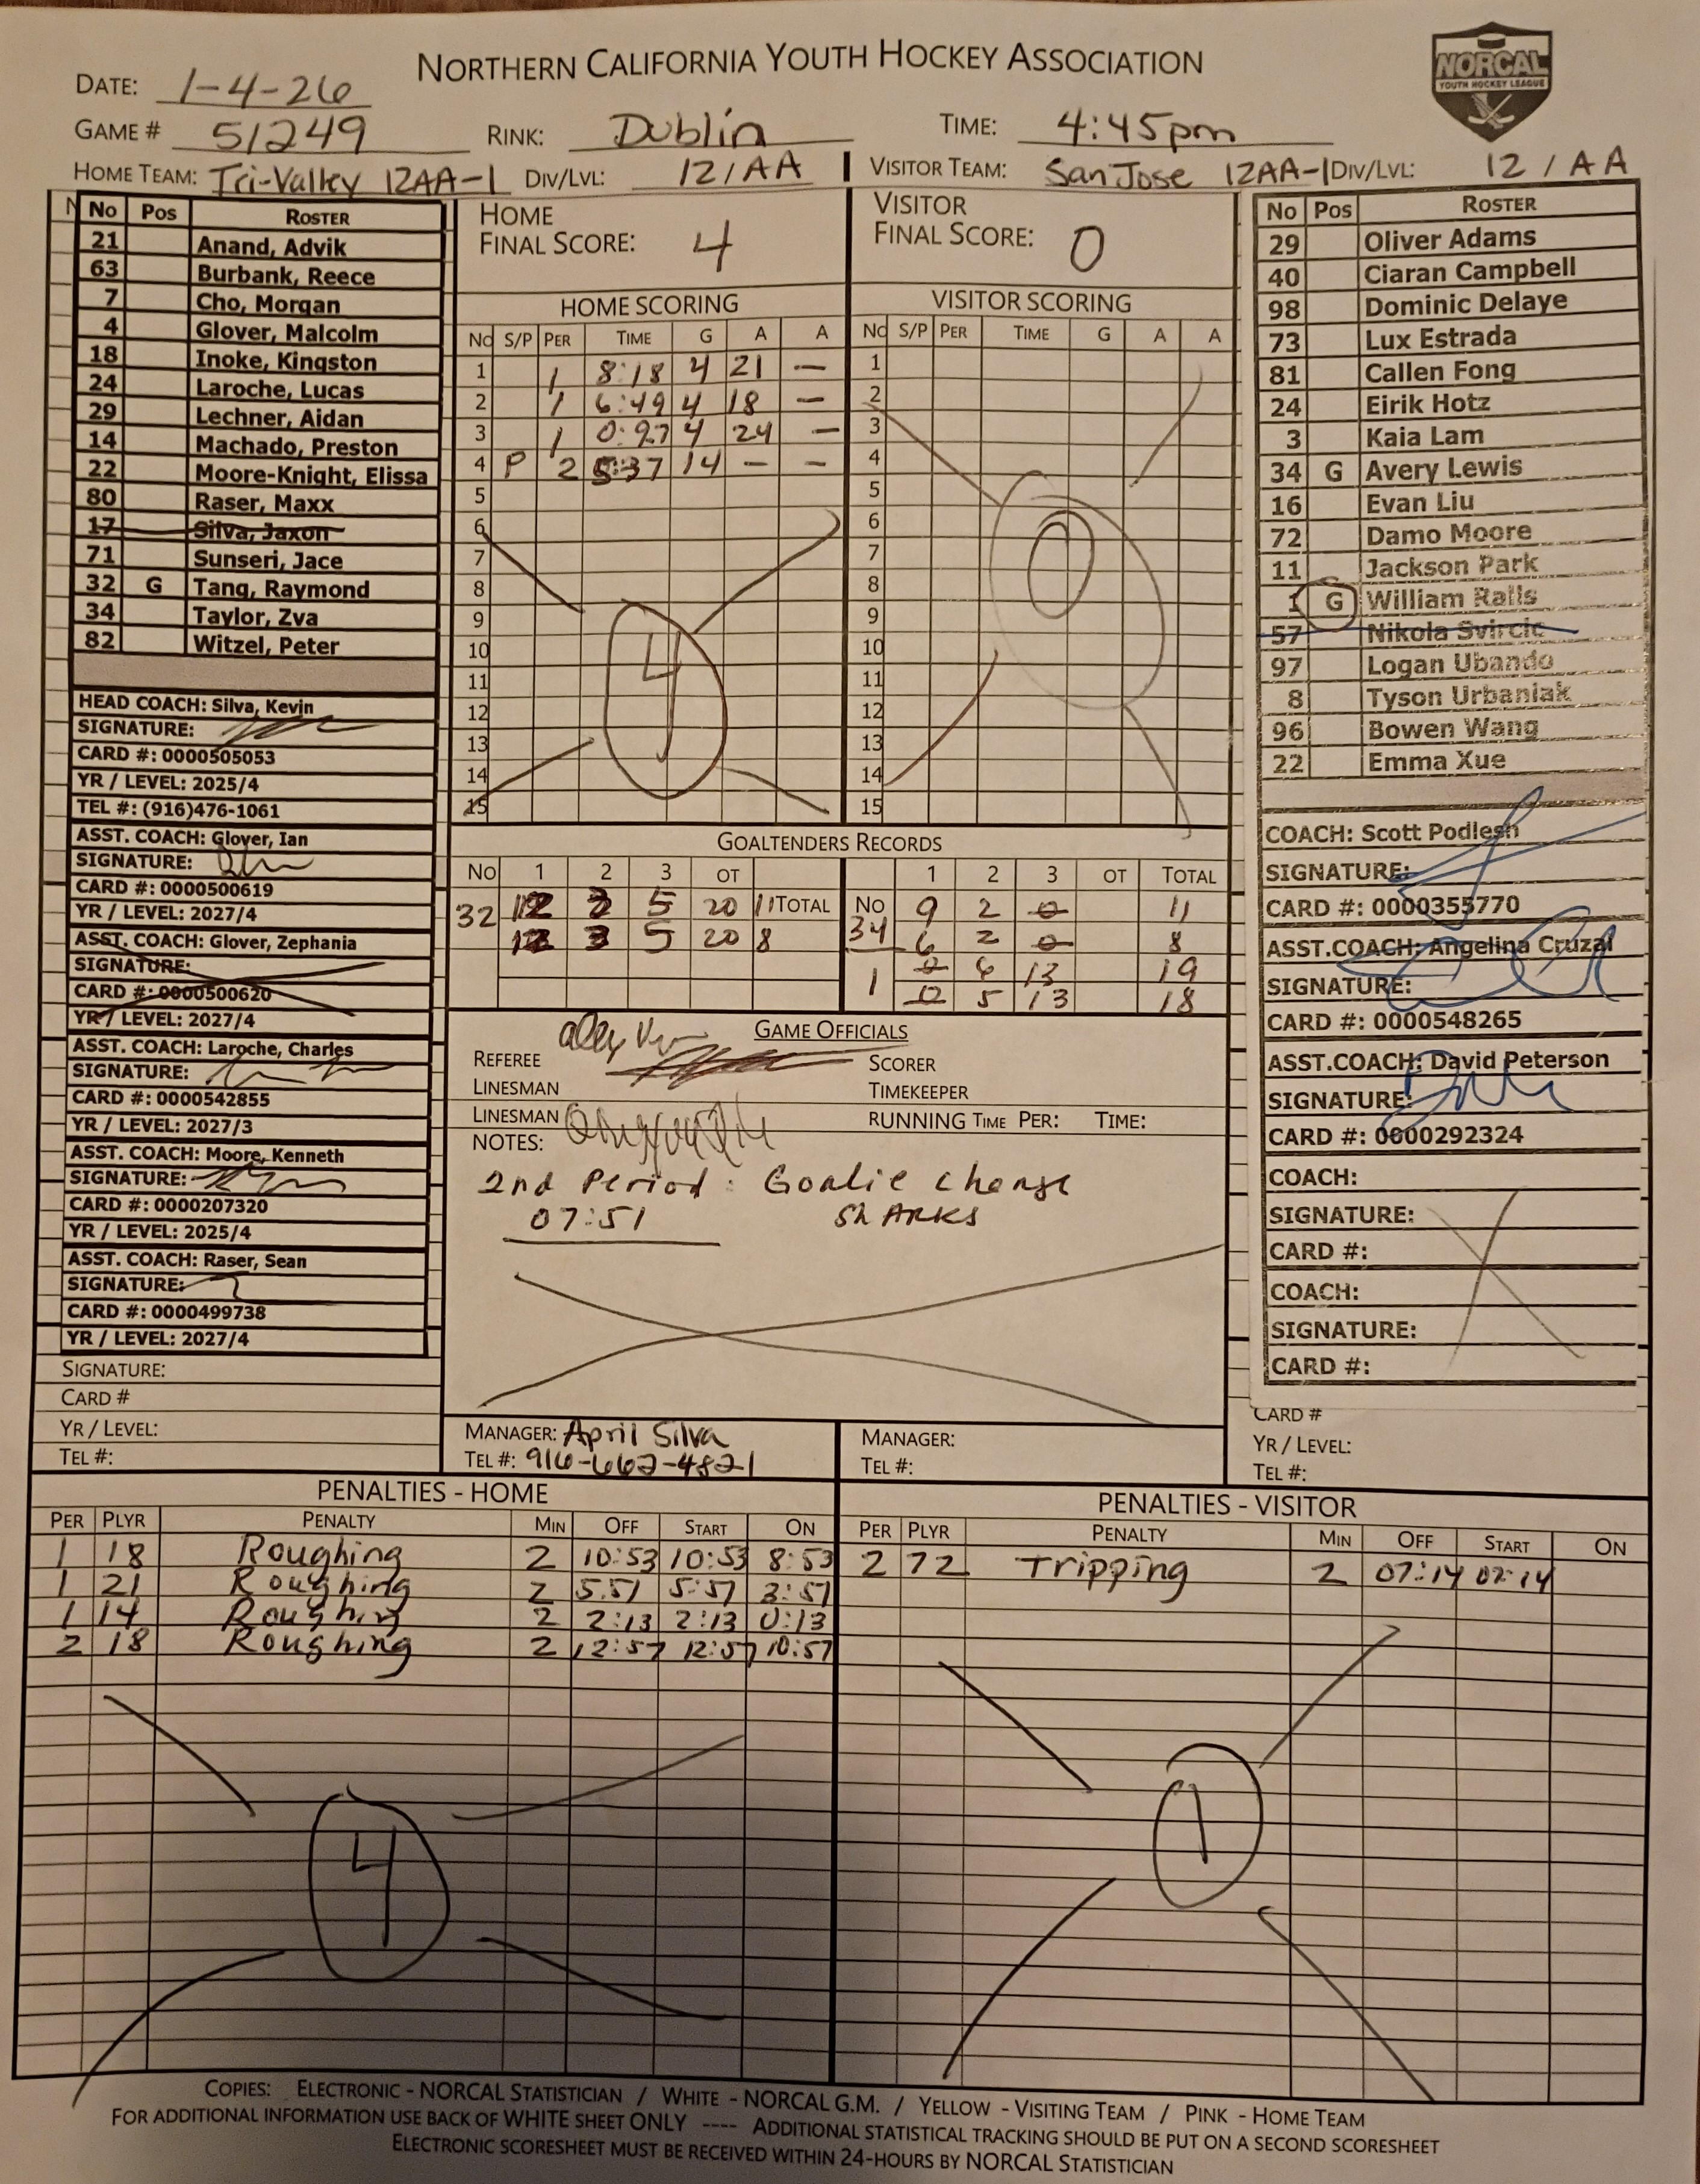 NORTHERN CALIFORNIA YOUTH HOCKEY ASSOCIATION
NORCAL
YOUTH HOCKEY LEAGUE
DATE: 1-4-26
GAME # 51249 RINK: Dublin TIME: 4:45pm
HOME TEAM: Tri-Valley 12AA-1 DIV/LVL: 12/AA VISITOR TEAM: San Jose 12AA-1 DIV/LVL: 12/AA
No Pos ROSTER
21 Anand, Advik
63 Burbank, Reece
7 Cho, Morgan
4 Glover, Malcolm
18 Inoke, Kingston
24 Laroche, Lucas
29 Lechner, Aidan
14 Machado, Preston
22 Moore-Knight, Elissa
80 Raser, Maxx
17 Silva, Jaxon
71 Sunseri, Jace
32 G Tang, Raymond
34 Taylor, Zva
82 Witzel, Peter
HEAD COACH: Silva, Kevin
SIGNATURE:
CARD #: 0000505053
YR / LEVEL: 2025/4
TEL #: (916)476-1061
ASST. COACH: Glover, Ian
SIGNATURE:
CARD #: 0000500619
YR / LEVEL: 2027/4
ASST. COACH: Glover, Zephania
SIGNATURE:
CARD #: 0000500620
YR / LEVEL: 2027/4
ASST. COACH: Laroche, Charles
SIGNATURE:
CARD #: 0000542855
YR / LEVEL: 2027/3
ASST. COACH: Moore, Kenneth
SIGNATURE:
CARD #: 0000207320
YR / LEVEL: 2025/4
ASST. COACH: Raser, Sean
SIGNATURE:
CARD #: 0000499738
YR / LEVEL: 2027/4
SIGNATURE:
CARD #
YR / LEVEL:
TEL #:
HOME
FINAL SCORE: 4
HOME SCORING
No S/P PER TIME G A A
1 1 8:18 4 21 —
2 1 6:49 4 18 —
3 1 0:27 4 24 —
4 P 2 5:37 14 — —
5
6
7
8
9
10
11
12
13
14
15
4
VISITOR
FINAL SCORE: 0
VISITOR SCORING
No S/P PER TIME G A A
1
2
3
4
5
6
7
8
9
10
11
12
13
14
15
0
GOALTENDERS RECORDS
No 1 2 3 OT
32 5 20 11 TOTAL
5 20 8
1 2 3 OT TOTAL
No 34 9 2 0 11
6 2 0 8
1 0 6 13 19
5 13 18
GAME OFFICIALS
REFEREE SCORER
LINESMAN TIMEKEEPER
LINESMAN RUNNING TIME PER: TIME:
NOTES:
2nd Period: Goalie change
07:51 SHARKS
MANAGER: April Silva
TEL #: 916-662-4821
MANAGER:
TEL #:
No Pos ROSTER
29 Oliver Adams
40 Ciaran Campbell
98 Dominic Delaye
73 Lux Estrada
81 Callen Fong
24 Eirik Hotz
3 Kaia Lam
34 G Avery Lewis
16 Evan Liu
72 Damo Moore
11 Jackson Park
1 G William Ralls
57 Nikola Svircic
97 Logan Ubando
8 Tyson Urbaniak
96 Bowen Wang
22 Emma Xue
COACH: Scott Podlesh
SIGNATURE:
CARD #: 0000355770
ASST.COACH: Angelina Cruzal
SIGNATURE:
CARD #: 0000548265
ASST.COACH: David Peterson
SIGNATURE:
CARD #: 0000292324
COACH:
SIGNATURE:
CARD #:
COACH:
SIGNATURE:
CARD #:
CARD #
YR / LEVEL:
TEL #:
PENALTIES - HOME
PER PLYR PENALTY MIN OFF START ON
1 18 Roughing 2 10:53 10:53 8:53
1 21 Roughing 2 5:57 5:57 3:57
1 14 Roughing 2 2:13 2:13 0:13
2 18 Roughing 2 12:57 12:57 10:57
4
PENALTIES - VISITOR
PER PLYR PENALTY MIN OFF START ON
2 72 Tripping 2 07:14 07:14
1
COPIES: ELECTRONIC - NORCAL STATISTICIAN / WHITE - NORCAL G.M. / YELLOW - VISITING TEAM / PINK - HOME TEAM
FOR ADDITIONAL INFORMATION USE BACK OF WHITE SHEET ONLY ---- ADDITIONAL STATISTICAL TRACKING SHOULD BE PUT ON A SECOND SCORESHEET
ELECTRONIC SCORESHEET MUST BE RECEIVED WITHIN 24-HOURS BY NORCAL STATISTICIAN